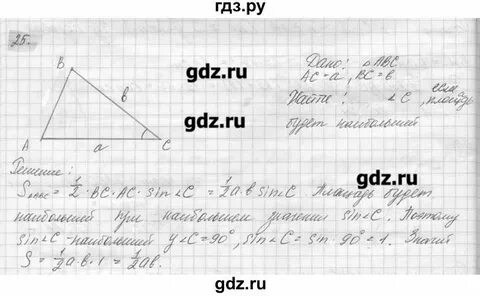 гдз.ру
25.
B
b
A
a
C
Дано: △ABC
AC = a, BC = b
Найти: ∠C, если площадь
будет наибольшей
Решение:
S△ABC = 1/2 · BC · AC · sin∠C = 1/2 a·b sin∠C. Площадь будет
наибольшей при наибольшем значении sin∠C. Поэтому
sin∠C - наибольший у ∠C = 90°, sin∠C = sin 90° = 1. Значит
S = 1/2 a·b·1 = 1/2 ab.
gdz.ru
gdz.ru
gdz.ru
gdz.ru
gdz.ru
gdz.ru